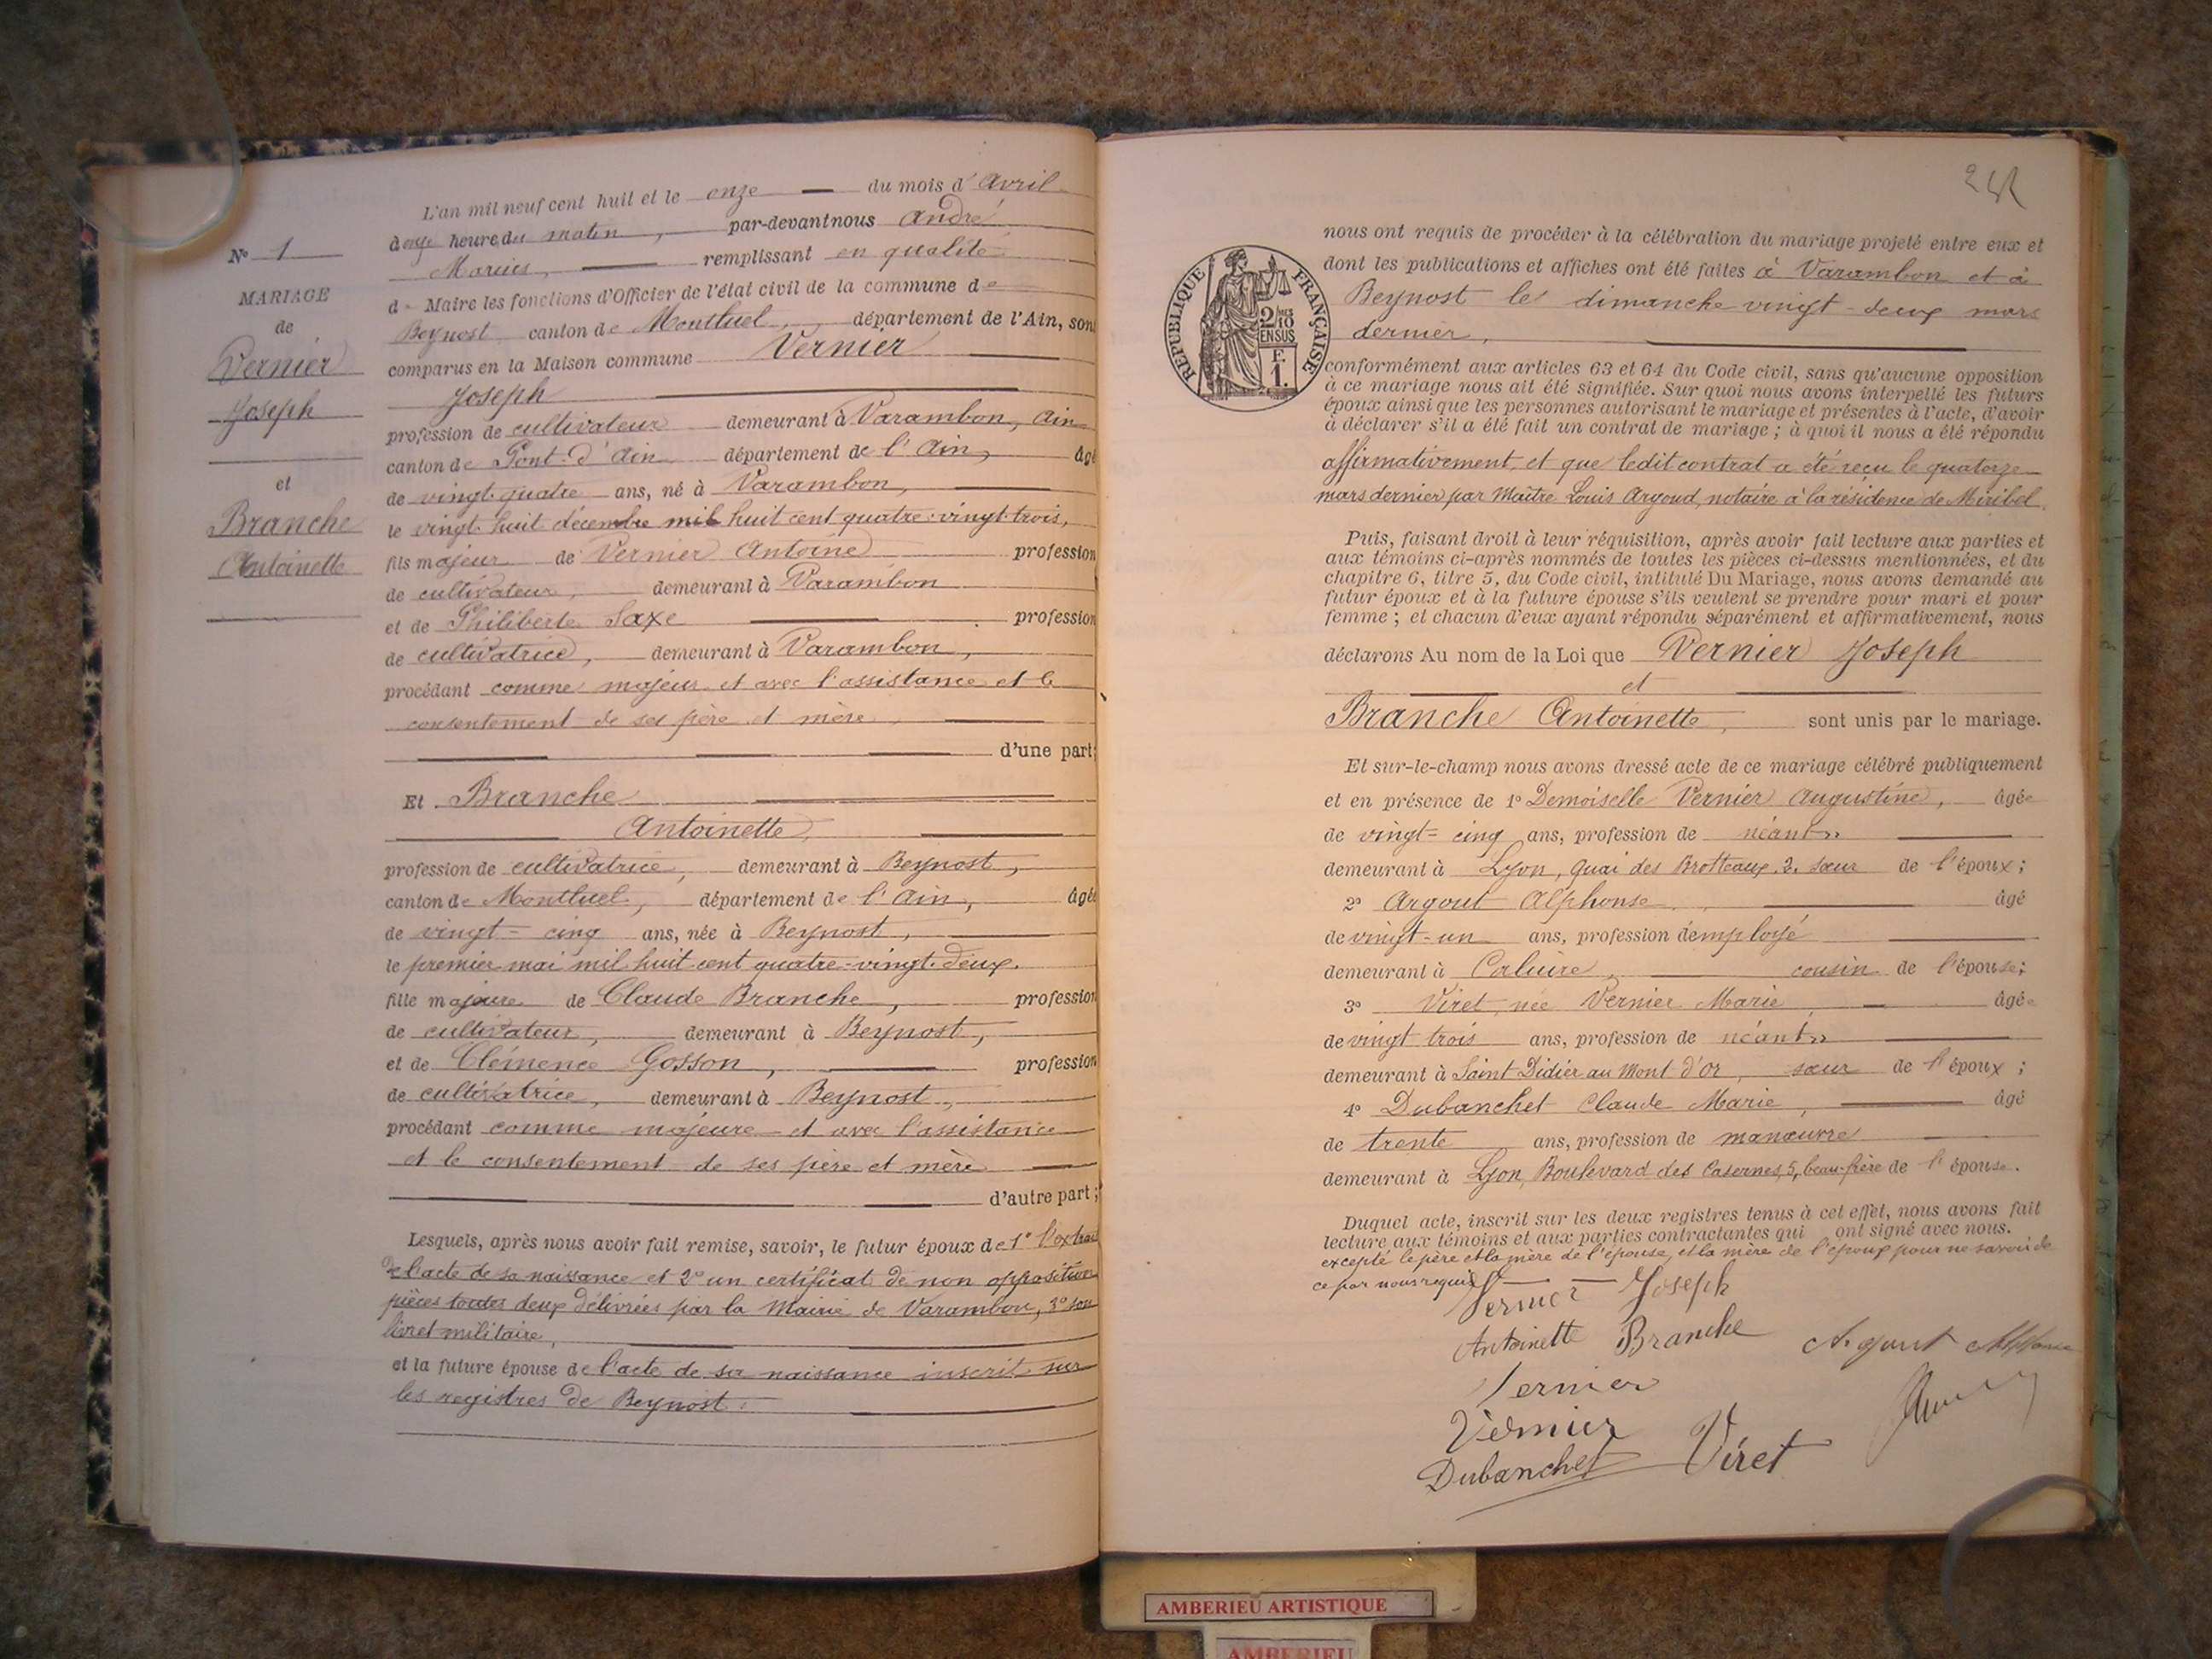 L'an mil neuf cent huit et le onze du mois d'Avril
à onze heure du matin, par-devant nous André
Marius, remplissant en qualité
de Maire les fonctions d'Officier de l'état civil de la commune de
Beynost canton de Montluel, département de l'Ain, sont
comparus en la Maison commune Vernier
Joseph
profession de cultivateur demeurant à Varambon, Ain
canton de Pont-d'Ain département de l'Ain, âgé
de vingt-quatre ans, né à Varambon,
le vingt-huit décembre mil huit cent quatre-vingt-trois,
fils majeur de Vernier Antoine profession
de cultivateur, demeurant à Varambon
et de Philiberte Saxe profession
de cultivatrice, demeurant à Varambon,
procédant comme majeur et avec l'assistance et le
consentement de ses père et mère,
d'une part;
Et Branche
Antoinette,
profession de cultivatrice, demeurant à Beynost,
canton de Montluel, département de l'Ain, âgée
de vingt-cinq ans, née à Beynost,
le premier mai mil huit cent quatre-vingt-deux.
fille majeure de Claude Branche, profession
de cultivateur, demeurant à Beynost,
et de Clémence Gosson, profession
de cultivatrice, demeurant à Beynost,
procédant comme majeure et avec l'assistance
et le consentement de ses père et mère
d'autre part;
Lesquels, après nous avoir fait remise, savoir, le futur époux de 1° l'extrait
de l'acte de sa naissance et 2° un certificat de non opposition
pièces toutes deux délivrées par la Mairie de Varambon, 3° son
livret militaire,
et la future épouse de l'acte de sa naissance inscrit sur
les registres de Beynost.
N° 1
MARIAGE
de
Vernier
Joseph
et
Branche
Antoinette
RÉPUBLIQUE FRANÇAISE
2/10
EN SUS
F.
1.
nous ont requis de procéder à la célébration du mariage projeté entre eux et
dont les publications et affiches ont été faites à Varambon et à
Beynost le dimanche vingt-deux mars
dernier,
conformément aux articles 63 et 64 du Code civil, sans qu'aucune opposition
à ce mariage nous ait été signifiée. Sur quoi nous avons interpellé les futurs
époux ainsi que les personnes autorisant le mariage et présentes à l'acte, d'avoir
à déclarer s'il a été fait un contrat de mariage ; à quoi il nous a été répondu
affirmativement, et que ledit contrat a été reçu le quatorze
mars dernier par Maître Louis Argoud, notaire à la résidence de Miribel.
Puis, faisant droit à leur réquisition, après avoir fait lecture aux parties et
aux témoins ci-après nommés de toutes les pièces ci-dessus mentionnées, et du
chapitre 6, titre 5, du Code civil, intitulé Du Mariage, nous avons demandé au
futur époux et à la future épouse s'ils veulent se prendre pour mari et pour
femme ; et chacun d'eux ayant répondu séparément et affirmativement, nous
déclarons Au nom de la Loi que Vernier Joseph
et
Branche Antoinette, sont unis par le mariage.
Et sur-le-champ nous avons dressé acte de ce mariage célébré publiquement
et en présence de 1° Demoiselle Vernier Augustine, âgée
de vingt-cinq ans, profession de néant
demeurant à Lyon, Quai des Brotteaux, 2, sœur de l'époux ;
2° Argout Alphonse, âgé
de vingt-un ans, profession d'employé
demeurant à Caluire, cousin de l'épouse;
3° Viret, née Vernier Marie, âgée
de vingt trois ans, profession de néant
demeurant à Saint Didier au Mont d'Or, sœur de l'époux ;
4° Dubanchet Claude Marie, âgé
de trente ans, profession de manœuvre
demeurant à Lyon, Boulevard des Casernes, 5, beau-frère de l'épouse.
Duquel acte, inscrit sur les deux registres tenus à cet effet, nous avons fait
lecture aux témoins et aux parties contractantes qui ont signé avec nous.
excepté le père et la mère de l'épouse, et la mère de l'époux pour ne savoir de
ce par nous requis
Vernier Joseph
Antoinette Branche Argout Alphonse
Vernier
Vernier
Dubanchet Viret
AMBERIEU ARTISTIQUE
AMBERIEU